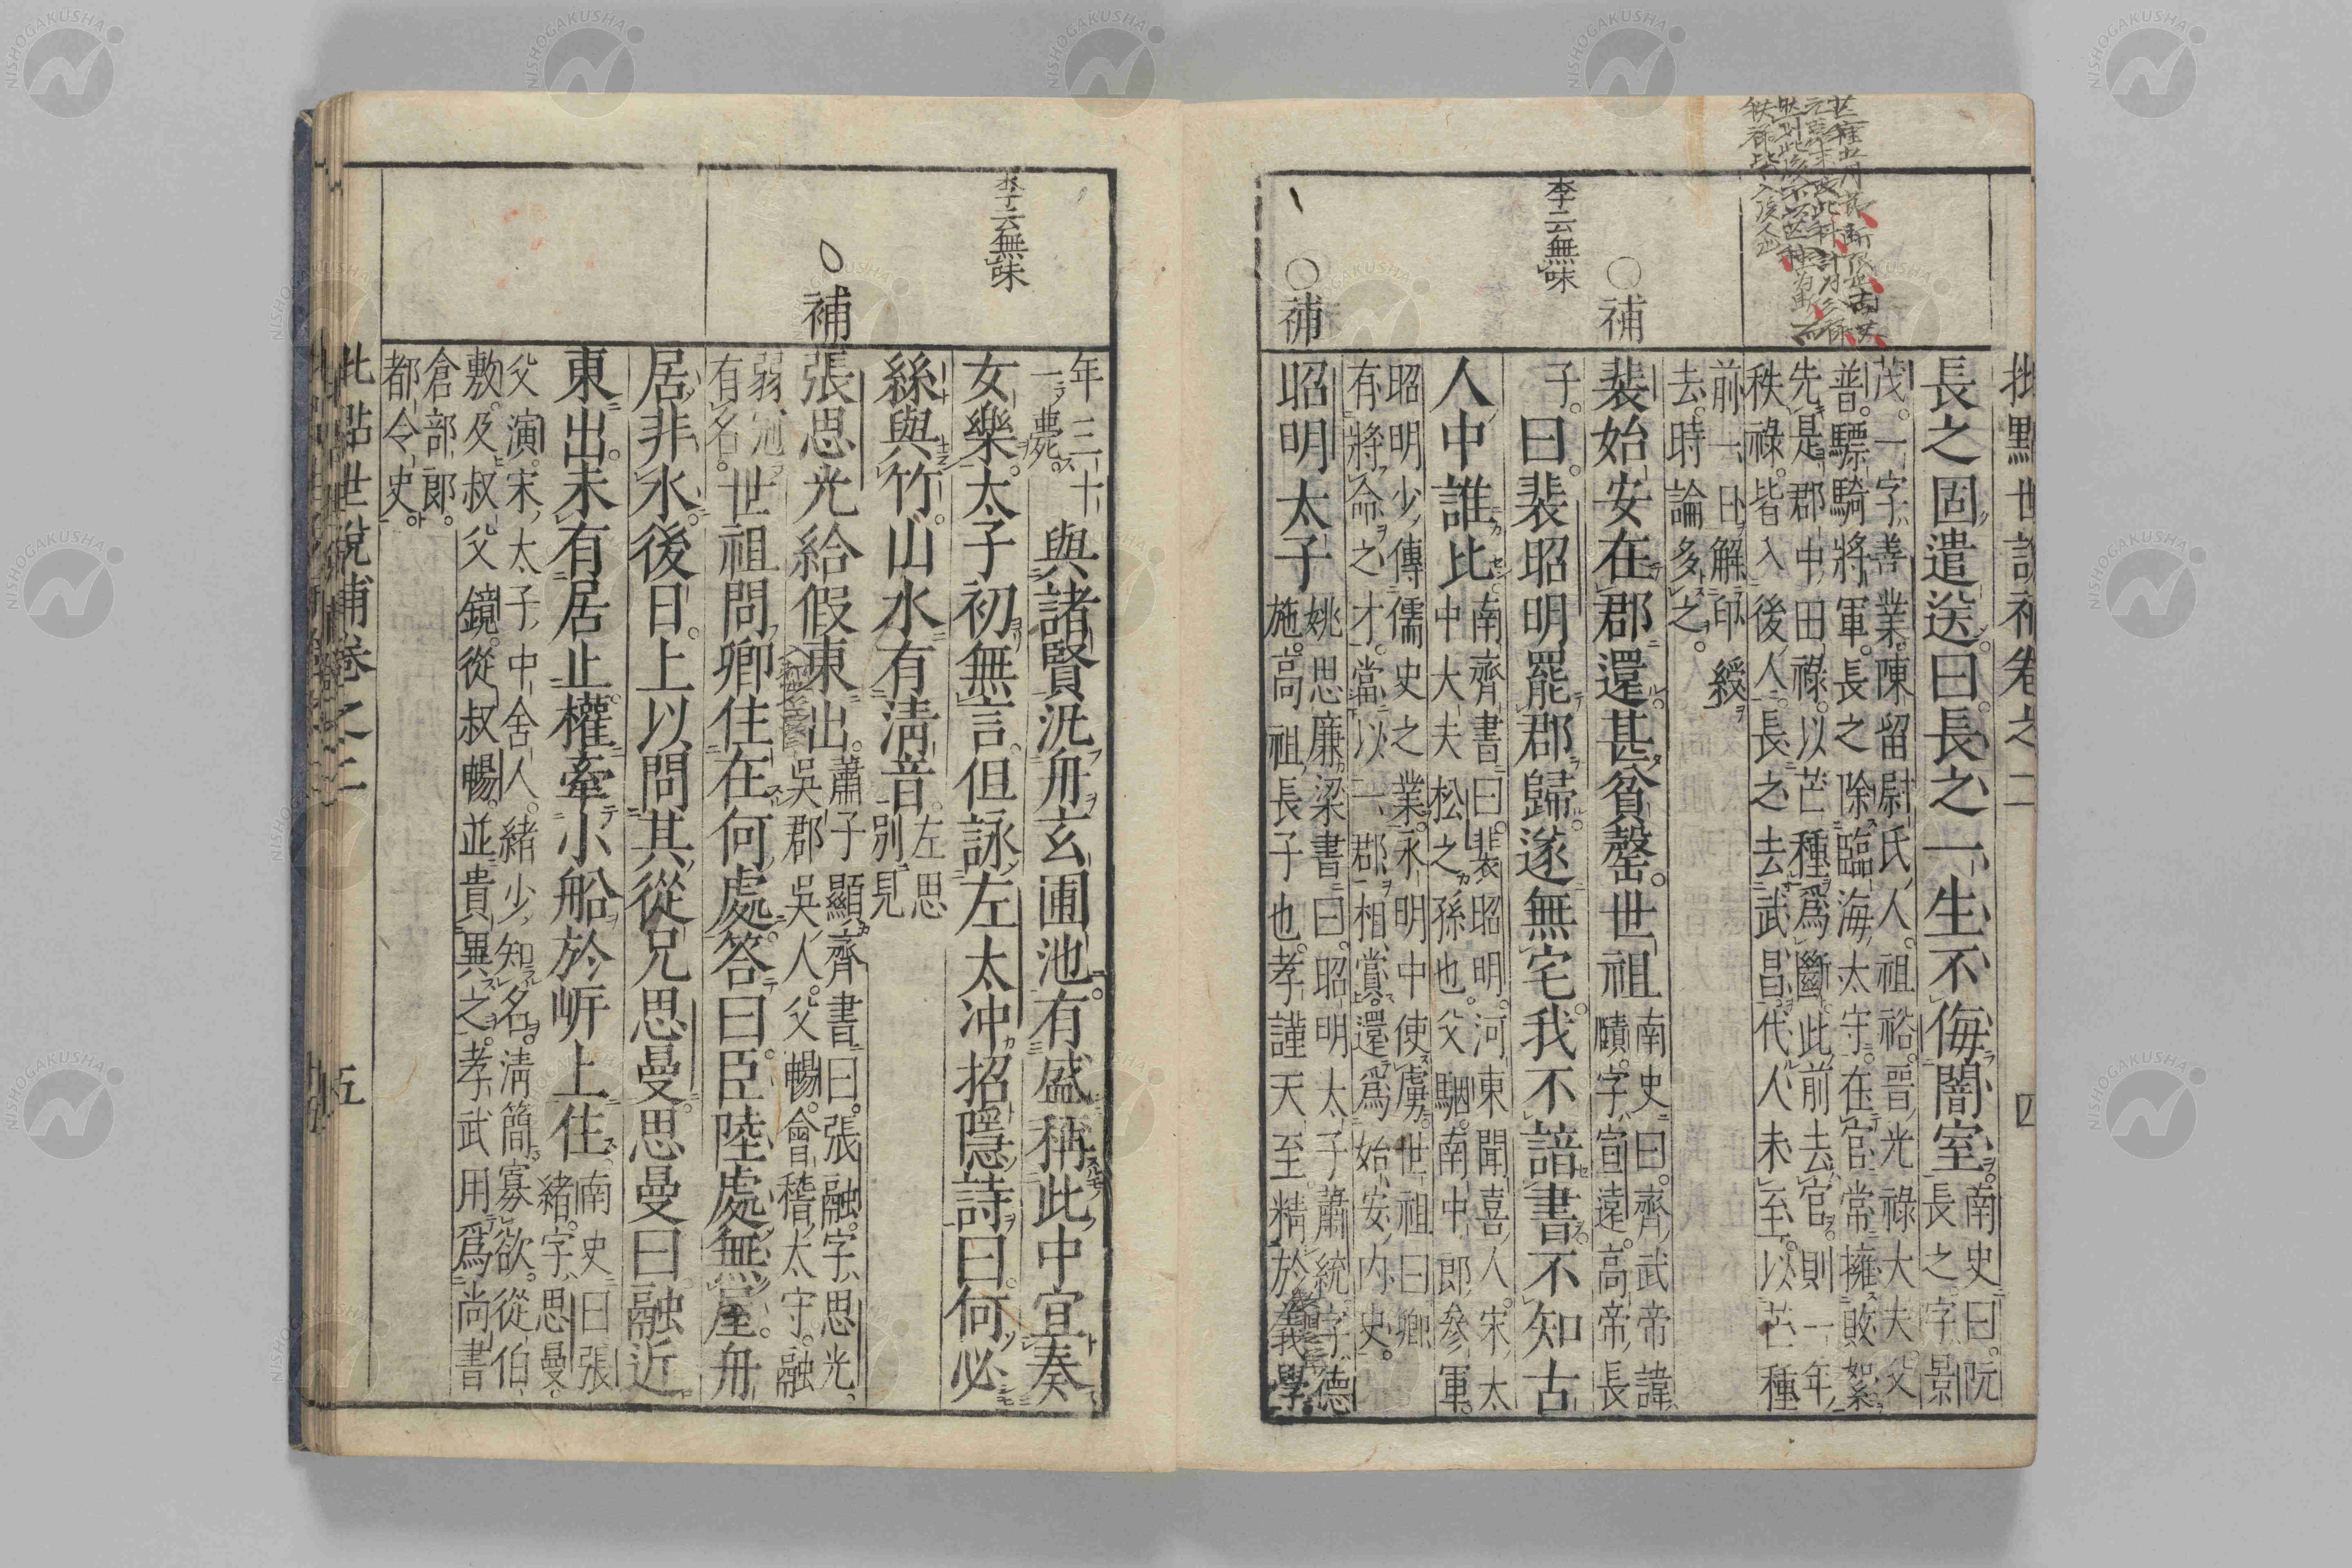 批點世說補卷之二
四
長之固遣送曰長之一生不侮闇室南史曰阮
長之字景
茂一字善業陳留尉氏人祖裕晉光祿大夫父
普驃騎將軍長之除臨海太守在官常擁敗絮
先是郡中田祿以芒種爲斷此前去官則一年
秩祿皆入後人長之去武昌代人未至以芒種
前一日解印綬
去時論多之
裴始安在郡還甚貧罄世祖南史曰齊武帝諱
賾字宣遠高帝長
子曰裴昭明罷郡歸遂無宅我不諳書不知古
人中誰比南齊書曰裴昭明河東聞喜人宋太
中大夫松之孫也父駰南中郎參軍
昭明少傳儒史之業永明中使虜世祖曰卿
有將命之才當以一郡相賞還爲始安內史
昭明太子姚思廉梁書曰昭明太子蕭統字德
施高祖長子也孝謹天至精於義學
李云無味
補
補
年三十
一薨與諸賢汎舟玄圃池有盛稱此中宜奏
女樂太子初無言但詠左太冲招隱詩曰何必
絲與竹山水有淸音左思
別見
張思光給假東出蕭子顯齊書曰張融字思光
吳郡吳人父暢會稽太守融
弱冠
有名世祖問卿住在何處答曰臣陸處無屋舟
居非水後日上以問其從兄思曼思曼曰融近
東出未有居止權牽小船於岍上住南史曰張
緒字思曼
父演宋太子中舍人緒少知名淸簡寡欲從伯
敷及叔父鏡從叔暢並貴異之孝武用爲尚書
倉部郎
都令史
李云無味
補
批點世說補卷之二
五